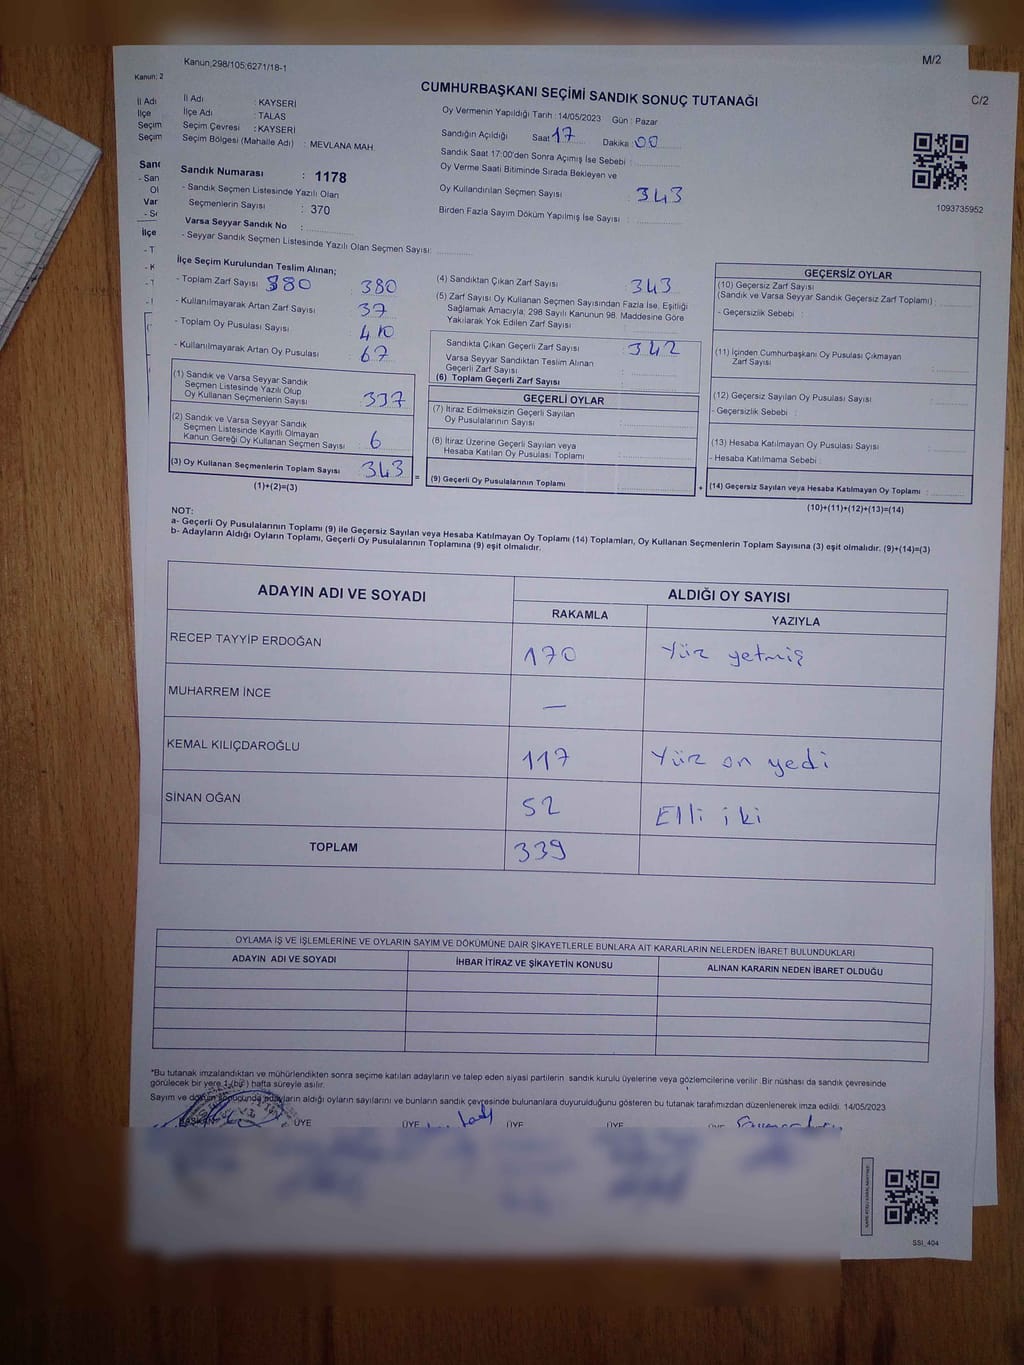 Kanun;298/105;6271/18-1
M/2
Kanun; 2
C/2
CUMHURBAŞKANI SEÇİMİ SANDIK SONUÇ TUTANAĞI
İl Adı : KAYSERİ
İlçe Adı : TALAS
Seçim Çevresi : KAYSERİ
Seçim Bölgesi (Mahalle Adı) : MEVLANA MAH.
İl Adı
İlçe
Seçim
Seçim
Oy Vermenin Yapıldığı Tarih : 14/05/2023 Gün : Pazar
Sandığın Açıldığı Saat 17 Dakika : 00
Sandık Saat 17:00'den Sonra Açılmış İse Sebebi :
Oy Verme Saati Bitiminde Sırada Bekleyen ve
Oy Kullandırılan Seçmen Sayısı : 343
Birden Fazla Sayım Döküm Yapılmış İse Sayısı :
1093735952
Sandık Numarası : 1178
- Sandık Seçmen Listesinde Yazılı Olan
Seçmenlerin Sayısı : 370
Varsa Seyyar Sandık No :
- Seyyar Sandık Seçmen Listesinde Yazılı Olan Seçmen Sayısı:
İlçe Seçim Kurulundan Teslim Alınan;
- Toplam Zarf Sayısı 380 380
- Kullanılmayarak Artan Zarf Sayısı 37
- Toplam Oy Pusulası Sayısı 410
- Kullanılmayarak Artan Oy Pusulası 67
(1) Sandık ve Varsa Seyyar Sandık
Seçmen Listesinde Yazılı Olup
Oy Kullanan Seçmenlerin Sayısı : 337
(2) Sandık ve Varsa Seyyar Sandık
Seçmen Listesinde Kayıtlı Olmayan
Kanun Gereği Oy Kullanan Seçmen Sayısı : 6
(3) Oy Kullanan Seçmenlerin Toplam Sayısı : 343
(1)+(2)=(3)
(4) Sandıktan Çıkan Zarf Sayısı : 343
(5) Zarf Sayısı Oy Kullanan Seçmen Sayısından Fazla İse, Eşitliği
Sağlamak Amacıyla; 298 Sayılı Kanunun 98. Maddesine Göre
Yakılarak Yok Edilen Zarf Sayısı :
Sandıkta Çıkan Geçerli Zarf Sayısı : 342
Varsa Seyyar Sandıktan Teslim Alınan
Geçerli Zarf Sayısı :
(6) Toplam Geçerli Zarf Sayısı :
GEÇERLİ OYLAR
(7) İtiraz Edilmeksizin Geçerli Sayılan
Oy Pusulalarının Sayısı :
(8) İtiraz Üzerine Geçerli Sayılan veya
Hesaba Katılan Oy Pusulası Toplamı :
= (9) Geçerli Oy Pusulalarının Toplamı :
GEÇERSİZ OYLAR
(10) Geçersiz Zarf Sayısı
(Sandık ve Varsa Seyyar Sandık Geçersiz Zarf Toplamı) :
- Geçersizlik Sebebi :
(11) İçinden Cumhurbaşkanı Oy Pusulası Çıkmayan
Zarf Sayısı :
(12) Geçersiz Sayılan Oy Pusulası Sayısı :
- Geçersizlik Sebebi :
(13) Hesaba Katılmayan Oy Pusulası Sayısı :
- Hesaba Katılmama Sebebi :
+ (14) Geçersiz Sayılan veya Hesaba Katılmayan Oy Toplamı :
(10)+(11)+(12)+(13)=(14)
NOT:
a- Geçerli Oy Pusulalarının Toplamı (9) ile Geçersiz Sayılan veya Hesaba Katılmayan Oy Toplamı (14) Toplamları, Oy Kullanan Seçmenlerin Toplam Sayısına (3) eşit olmalıdır. (9)+(14)=(3)
b- Adayların Aldığı Oyların Toplamı, Geçerli Oy Pusulalarının Toplamına (9) eşit olmalıdır.
ADAYIN ADI VE SOYADI ALDIĞI OY SAYISI
RAKAMLA YAZIYLA
RECEP TAYYİP ERDOĞAN 170 Yüz yetmiş
MUHARREM İNCE —
KEMAL KILIÇDAROĞLU 117 Yüz on yedi
SİNAN OĞAN 52 Elli iki
TOPLAM 339
OYLAMA İŞ VE İŞLEMLERİNE VE OYLARIN SAYIM VE DÖKÜMÜNE DAİR ŞİKAYETLERLE BUNLARA AİT KARARLARIN NELERDEN İBARET BULUNDUKLARI
ADAYIN ADI VE SOYADI İHBAR İTİRAZ VE ŞİKAYETİN KONUSU ALINAN KARARIN NEDEN İBARET OLDUĞU
*Bu tutanak imzalandıktan ve mühürlendikten sonra seçime katılan adayların ve talep eden siyasi partilerin sandık kurulu üyelerine veya gözlemcilerine verilir. Bir nüshası da sandık çevresinde
görülecek bir yere 1 (bir) hafta süreyle asılır.
Sayım ve döküm sonucunda adayların aldığı oyların sayılarını ve bunların sandık çevresinde bulunanlara duyurulduğunu gösteren bu tutanak tarafımızdan düzenlenerek imza edildi. 14/05/2023
BAŞKAN ÜYE ÜYE ÜYE ÜYE ÜYE
SSI_404